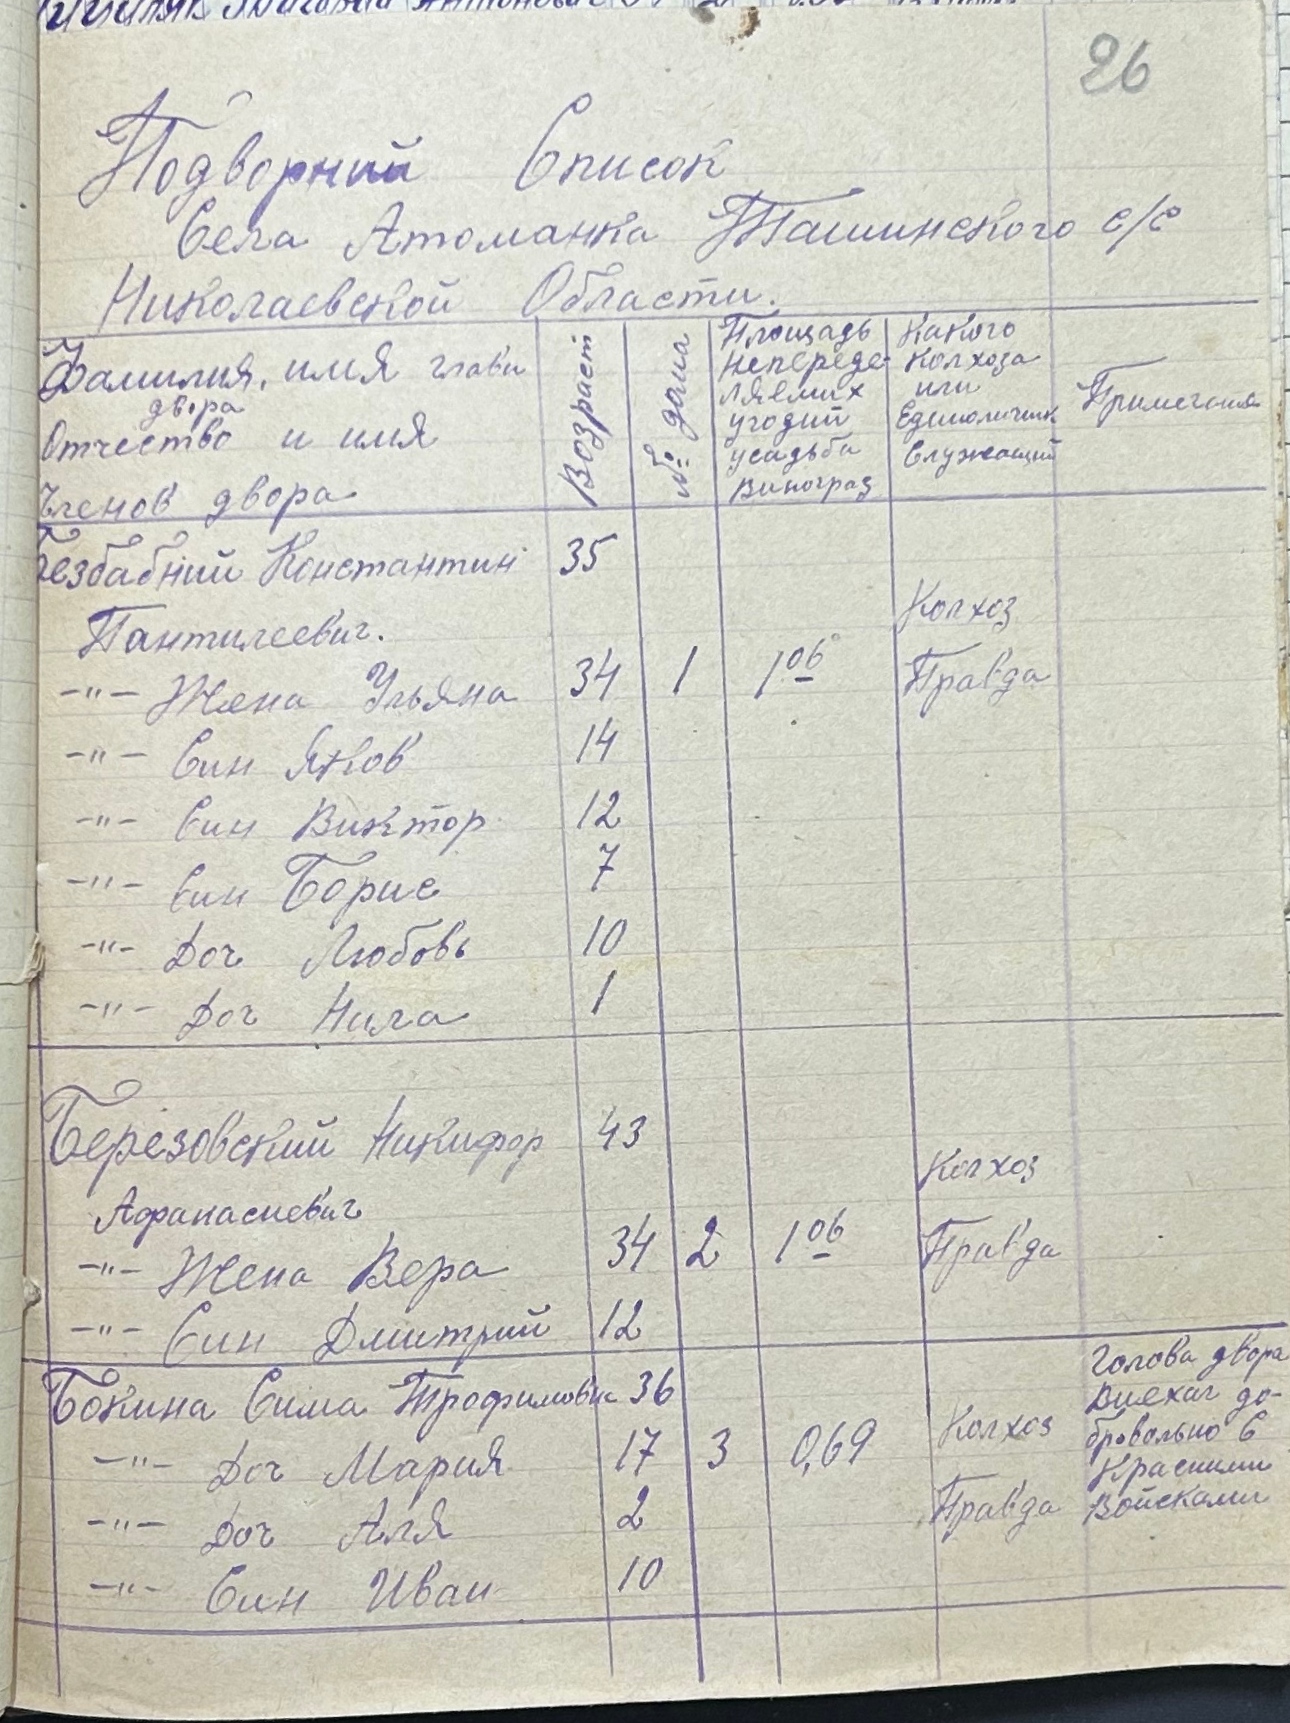 26
Подворний Список
Села Атоманка Ташинского с/с
Николаевской Области.
Фамилия, имя глави
двора
Отчество и имя
Членов двора
Возраст
№ дома
Площадь
непереде-
ляемих
угодий
усадьба
виноград
Какого
колхоза
или
Единоличник
Служащий
Примечания
Безбабний Константин 35
Пантилеевич. Колхоз
-"- Жена Ульяна 34 1 1 06 Правда
-"- Син Яков 14
-"- Син Виктор 12
-"- Син Борис 7
-"- Доч Любовь 10
-"- Доч Нила 1
Березовский Никифор 43
Афанасиевич Колхоз
-"- Жена Вера 34 2 1 06 Правда
-"- Син Дмитрий 12
Бокина Сима Трофимовна 36
-"- Доч Мария 17 3 0,69 Колхоз
-"- Доч Аля 2 Правда
-"- Син Иван 10
Голова двора
Виехал до-
бровольно С
Красними
Войсками